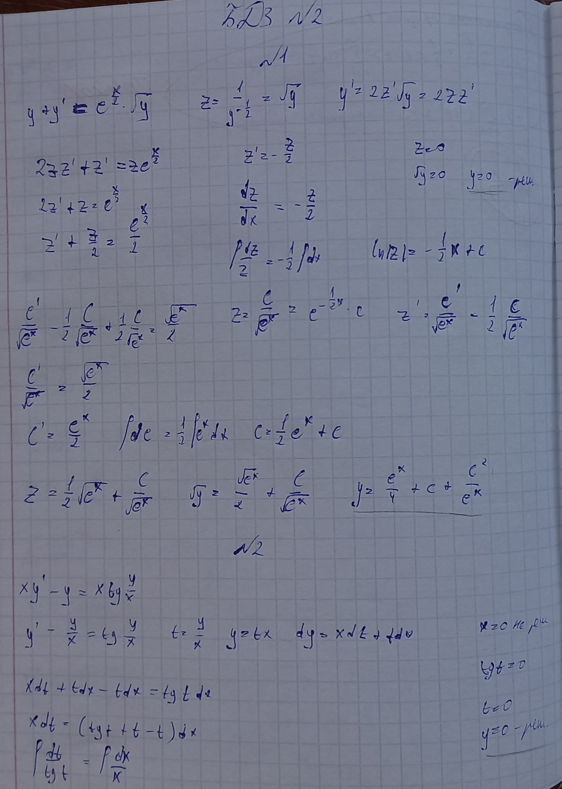 БДЗ №2
№1
y + y' = e^{x/2} · √y    z = 1/y^{-1/2} = √y    y' = 2z'√y = 2zz'
2zz' + z' = ze^{x/2}    z' = -z/2    z=0
√y=0    y=0 - реш.
2z' + z = e^{x/2}    dz/dx = -z/2
z' + z/2 = e^{x/2}/2
∫dz/z = -1/2 ∫dx    ln|z| = -1/2 x + c
c'/√e^x - 1/2 c/√e^x + 1/2 c/√e^x = √e^x/2    z = c/√e^x = e^{-1/2 x} · c    z' = c'/√e^x - 1/2 c/√e^x
c'/√e^x = √e^x/2
c' = e^x/2    ∫dc = 1/2 ∫e^x dx    c = 1/2 e^x + c
z = 1/2 √e^x + c/√e^x    √y = √e^x/2 + c/√e^x    y = e^x/4 + c + c²/e^x
№2
xy' - y = x tg y/x
y' - y/x = tg y/x    t = y/x    y = tx    dy = xdt + tdx    x=0 не реш
tgt=0
xdt + tdx - tdx = tg t dx
t=0
xdt = (tgt + t - t)dx
y=0 - реш.
∫dt/tgt = ∫dx/x